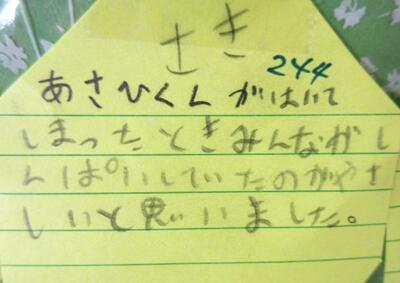 さき
244
あさひくんがはいて
しまったときみんながし
んぱいしていたのがやさ
しいと思いました。